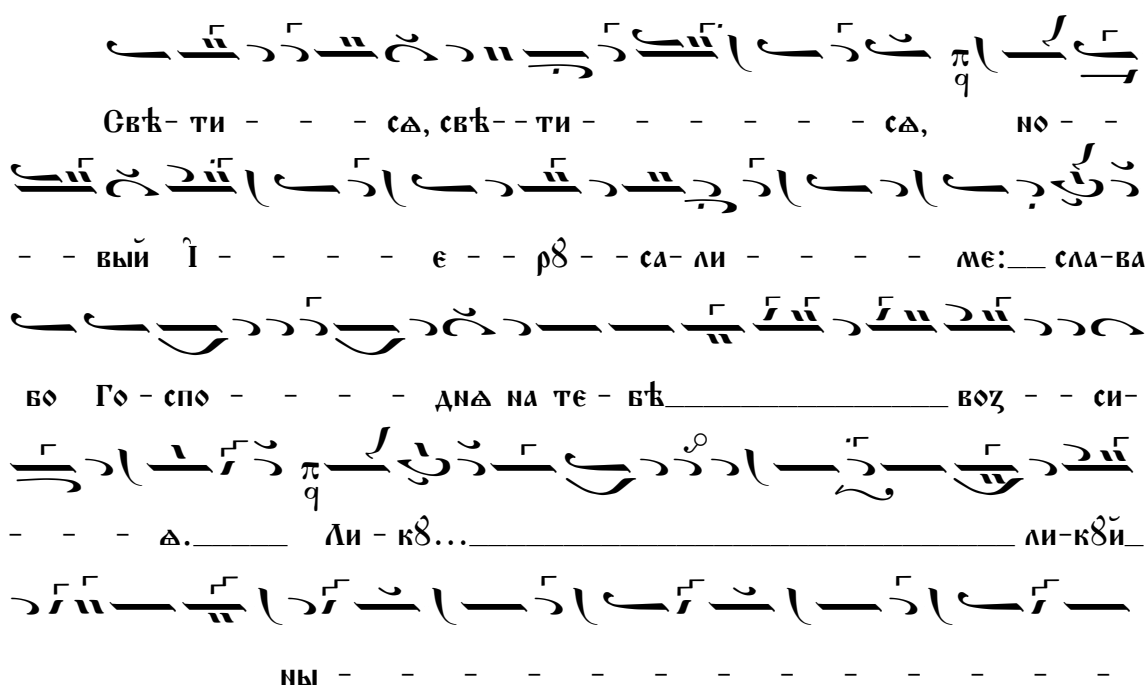 Свѣ- ти - - - сѧ, свѣ- - ти - - - - - - - сѧ, но - -
- - вый І҆ - - - - - е - - рꙋ - - са- ли - - - - ме:__ сла-ва
бо Го - спо - - - - днѧ на те - бѣ_______________ воꙁ - - си-
- - - ѧ._____ Ли - кꙋ...______________________________ ли-кꙋй_
ны - - - - - - - - - - - -